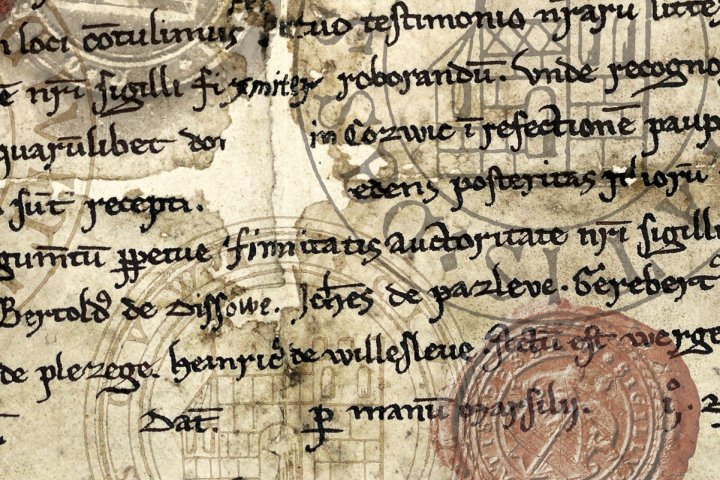 n loci cōtulimus ꝑpetuo testimonio nr̄aru litte
ē nr̄i sigilli firmiter roborandū. Vnde recogno
quarūlibet doi in Cozwic ī refectionē paup
sūt recepti. ederis posteritas illorū
gumtū ꝑpetue firmitatis auctoritate nr̄i sigilli
Bertold9 de Dissowe. Joh̄es de pazleve. Gerebert
de plezege. heinric9 de willesleve. Actū est werge
Dat̄. ꝑ manū Marsilij.